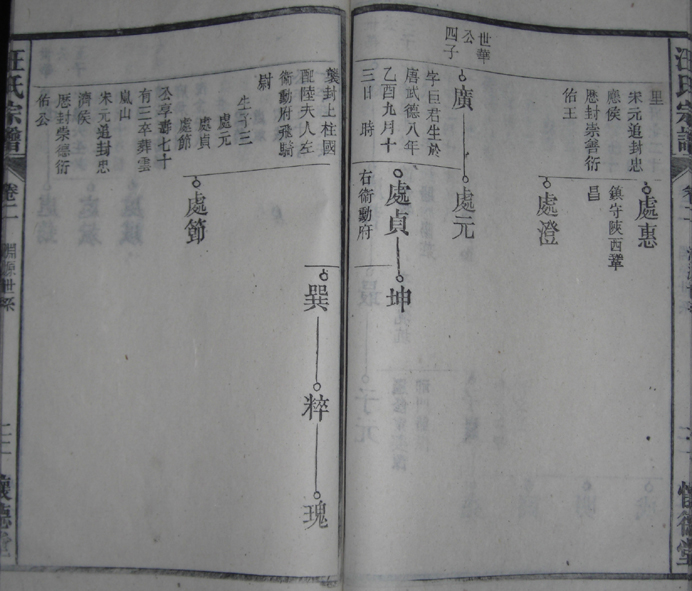 汪氏宗譜
卷二
里
宋元追封忠
應侯
歷封崇善衍
佑王
處惠
鎮守陝西鞏
昌
處澄
世華
公
四子
廣
處元
字巨君生於
唐武德八年
乙酉九月十
三日 時
處貞
坤
右衛勳府
襲封上柱國
配陸夫人左
衛勳府飛騎
尉
巽
粹
瑰
生子三
處元
處貞
處節
公享壽七十
有三卒葬雲
嵐山
宋元追封忠
濟侯
歷封崇德衍
佑公
處節
汪氏宗譜
卷二
淵源世系
二二
懷德堂